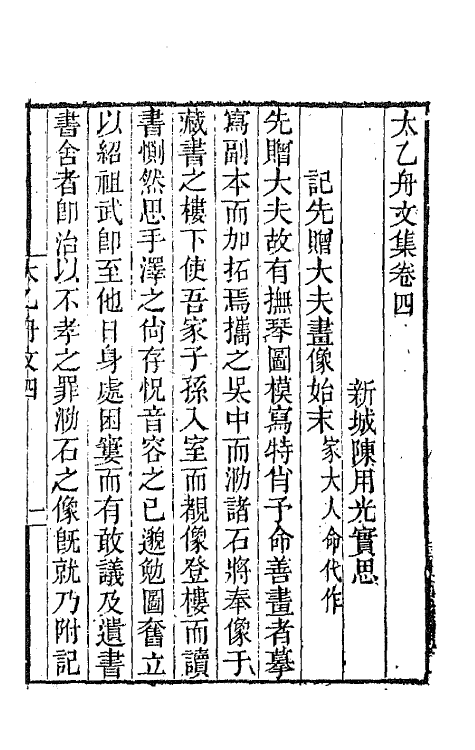 太乙舟文集卷四
新城陳用光實思
記先贈大夫畫像始末家大人命代作
先贈大夫故有撫琴圖模寫特肖予命善畫者摹
寫副本而加拓焉攜之吳中而泐諸石將奉像于
藏書之樓下使吾家子孫入室而覩像登樓而讀
書惻然思手澤之尙存怳音容之已邈勉圖奮立
以紹祖武卽至他日身處困窶而有敢議及遺書
書舍者卽治以不孝之罪泐石之像旣就乃附記
太乙舟文四
一